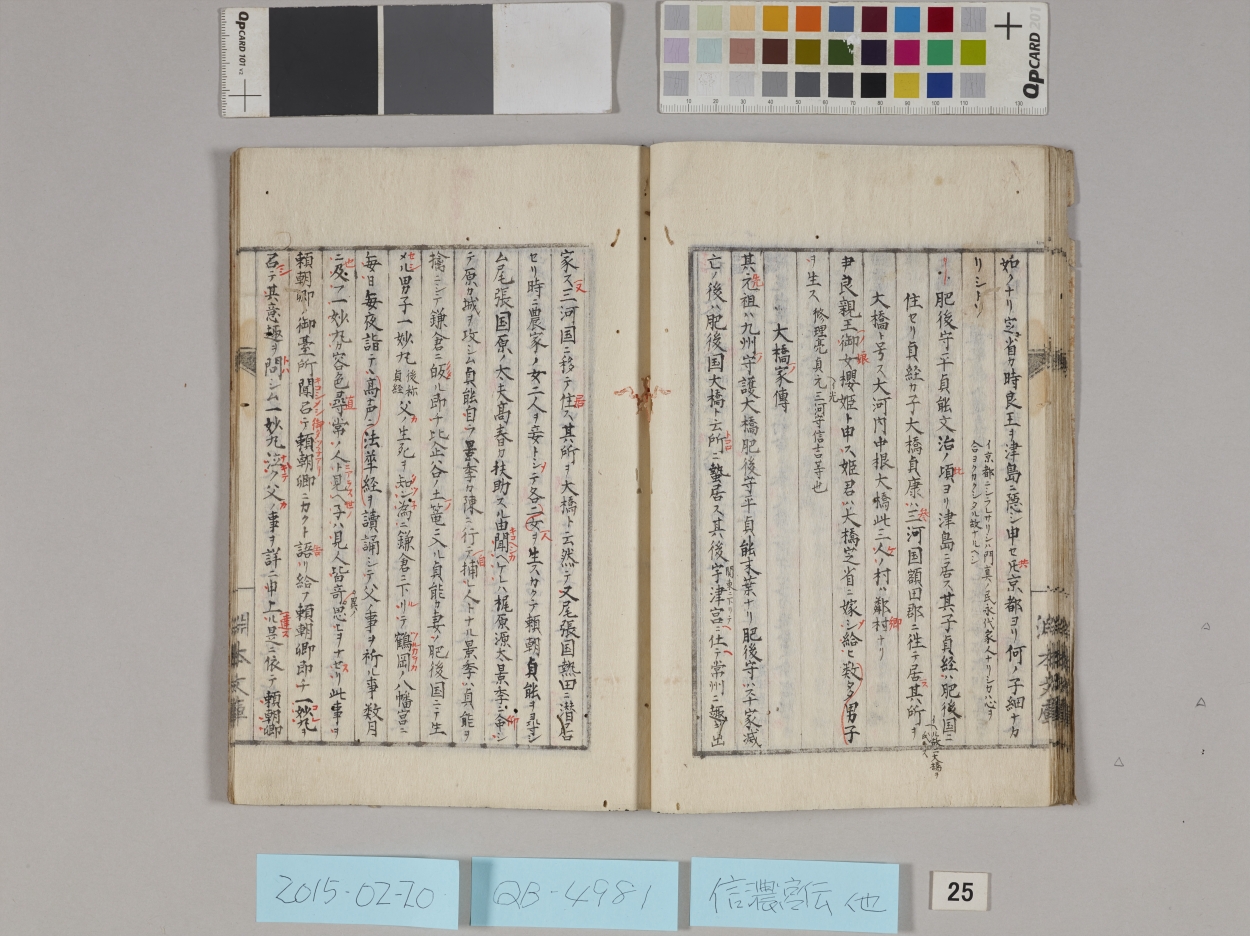 如クナリ定省カ時良王ヲ津島ニ隠シ申セ𪜈京都ヨリ何ノ子細ナカ
リシトソ
肥後守平貞能文治ノ頃ヨリ津島ニ居ス其子貞経ハ肥後国ニ
住セリ貞経カ子大橋貞康ハ三河国額田郡ニ住テ居其所ヲ
大橋ト号ス大河内中根大橋此三人ノ村ハ鄰村ナリ
尹良親王御女櫻姫ト申ス姫君ハ大橋定省ニ嫁シ給ヒ数多男子
ヲ生ス 修理亮貞元三河守信吉等也
大橋家傳
其元祖ハ九州守護大橋肥後守平貞能末葉ナリ肥後守ハ平家滅
亡ノ後ハ肥後国大橋ト云所ニ蟄居ス其後宇津宮ニ仕テ常州ニ趣出
家ス三河国ニ移テ住ス其所ヲ大橋ト云然テ又尾張国熱田ニ潜居
セリ時ニ農家ノ女二人ヲ妾トシテ各二女ヲ生スカクテ頼朝貞能ヲ尋シ
ム尾張国原ノ大夫高春カ扶助スル由聞ヘケレハ梶原源太景季ニ命シ
テ原カ城ヲ攻シム貞能自ラ景季カ陳ニ行テ捕レ人トナル景季ハ貞能ヲ
擒ニシテ鎌倉ニ皈ル即チ比企谷ノ土篭ニ入ル貞能カ妻ハ肥後国ニテ生
メル男子一妙丸 後称貞経 父ノ生死ヲ知ン為ニ鎌倉ニ下リテ鶴岡ノ八幡宮ニ
毎日毎夜詣テ高声ニ法華経ヲ讀誦シテ父ノ事ヲ祈ル事数月
ニ及フ一妙丸カ容色尋常ノ人ト見ヘ子ハ見人皆奇思ヲナセリ此事ヲ
頼朝卿ノ御基所聞召テ頼朝卿ニカクト語リ給フ頼朝卿即チ一妙丸ヲ
召テ其意趣ヲ問シム一妙丸泣々父ノ事ヲ詳ニ申上ル是ニ依テ頼朝卿
QPCARD 101
QPCARD 201
2015-02-20
QB-4981
信濃宮伝 他
25